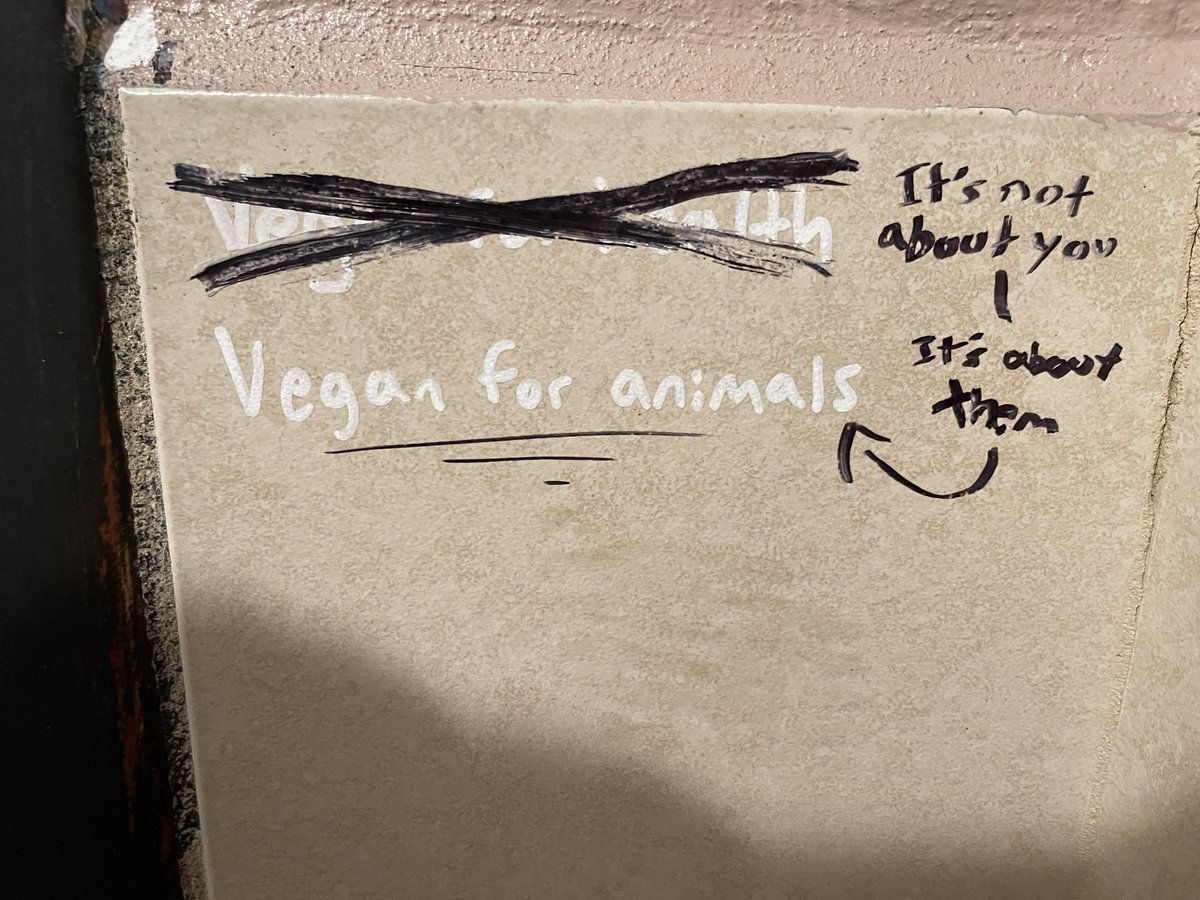 Vegan for health
Vegan for animals
It's not
about you
It's about
them